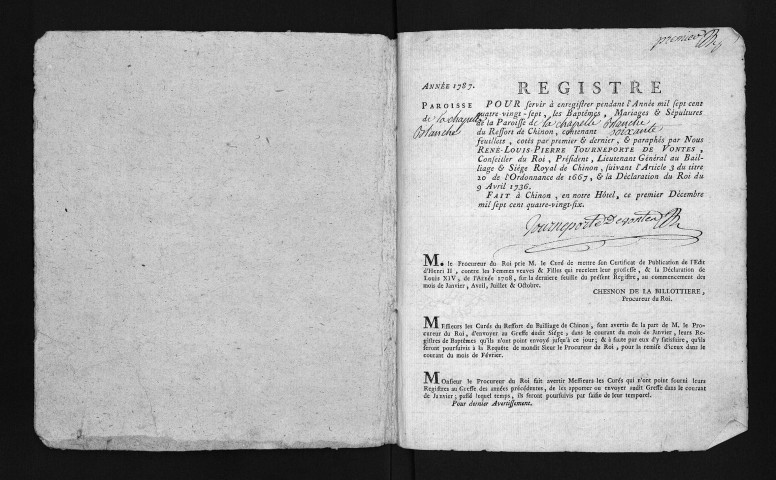 premier
ANNÉE 1787.
REGISTRE
PAROISSE
de la chapelle
blanche
POUR servir à enregistrer pendant l'Année mil sept cent
quatre-vingt-sept, les Baptêmes, Mariages & Sépultures
de la Paroisse de la chapelle blanche
du Ressort de Chinon, contenant soixante
feuillets, cotés par premier & dernier, & paraphés par Nous
RENÉ-LOUIS-PIERRE TOURNEPORTE DE VONTES,
Conseiller du Roi, Président, Lieutenant Général au Bail-
liage & Siége Royal de Chinon, suivant l'Article 3 du titre
20 de l'Ordonnance de 1667, & la Déclaration du Roi du
9 Avril 1736.
FAIT à Chinon, en notre Hôtel, ce premier Décembre
mil sept cent quatre-vingt-six.
Tourneporte Devontes
M. le Procureur du Roi prie M. le Curé de mettre son Certificat de Publication de l'Edit
d'Henri II, contre les Femmes veuves & Filles qui recelent leur grossesse, & la Déclaration de
Louis XIV, de l'Année 1708, sur la derniere feuille du présent Registre, au commencement des
mois de Janvier, Avril, Juillet & Octobre.
CHESNON DE LA BILLOTTIERE,
Procureur du Roi.
MEssieurs les Curés du Ressort du Bailliage de Chinon, sont avertis de la part de M. le Pro-
cureur du Roi, d'envoyer au Greffe dudit Siége, dans le courant du mois de Janvier, leurs Re-
gistres de Baptêmes qu'ils n'ont point envoyé jusqu'à ce jour; & à faute par eux d'y satisfaire, qu'ils
seront poursuivis à la Requête de mondit Sieur le Procureur du Roi, pour la remise d'iceux dans le
courant du mois de Février.
MOnsieur le Procureur du Roi fait avertir Messieurs les Curés qui n'ont point fourni leurs
Registres au Greffe des années précédentes, de les apporter ou envoyer audit Greffe dans le courant
de Janvier; passé lequel temps, ils seront poursuivis par saisie de leur temporel.
Pour dernier Avertissement.